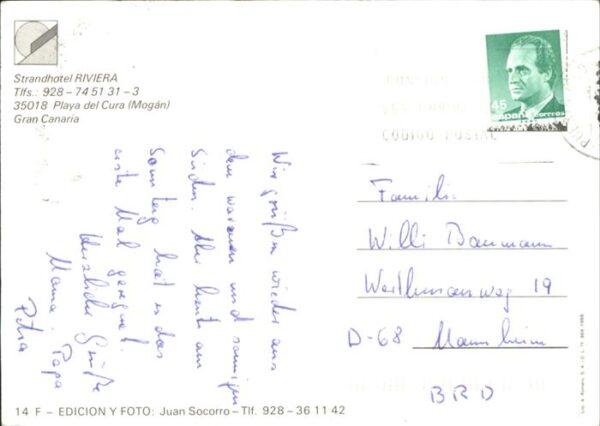 Strandhotel RIVIERA
Tlfs.: 928 – 74 51 31 – 3
35018 Playa del Cura (Mogán)
Gran Canaria
45
españa correos
CODIGO POSTAL
Wir grüßen wieder aus
dem warmen und sonnigen
Süden. Aber heute am
Sonntag hat es das
erste Mal geregnet.
Herzliche Grüße
Mama Papa
Petra
Familie
Willi Baumann
19
D-68 Mannheim
BRD
14 F – EDICION Y FOTO: Juan Socorro – Tlf. 928 – 36 11 42